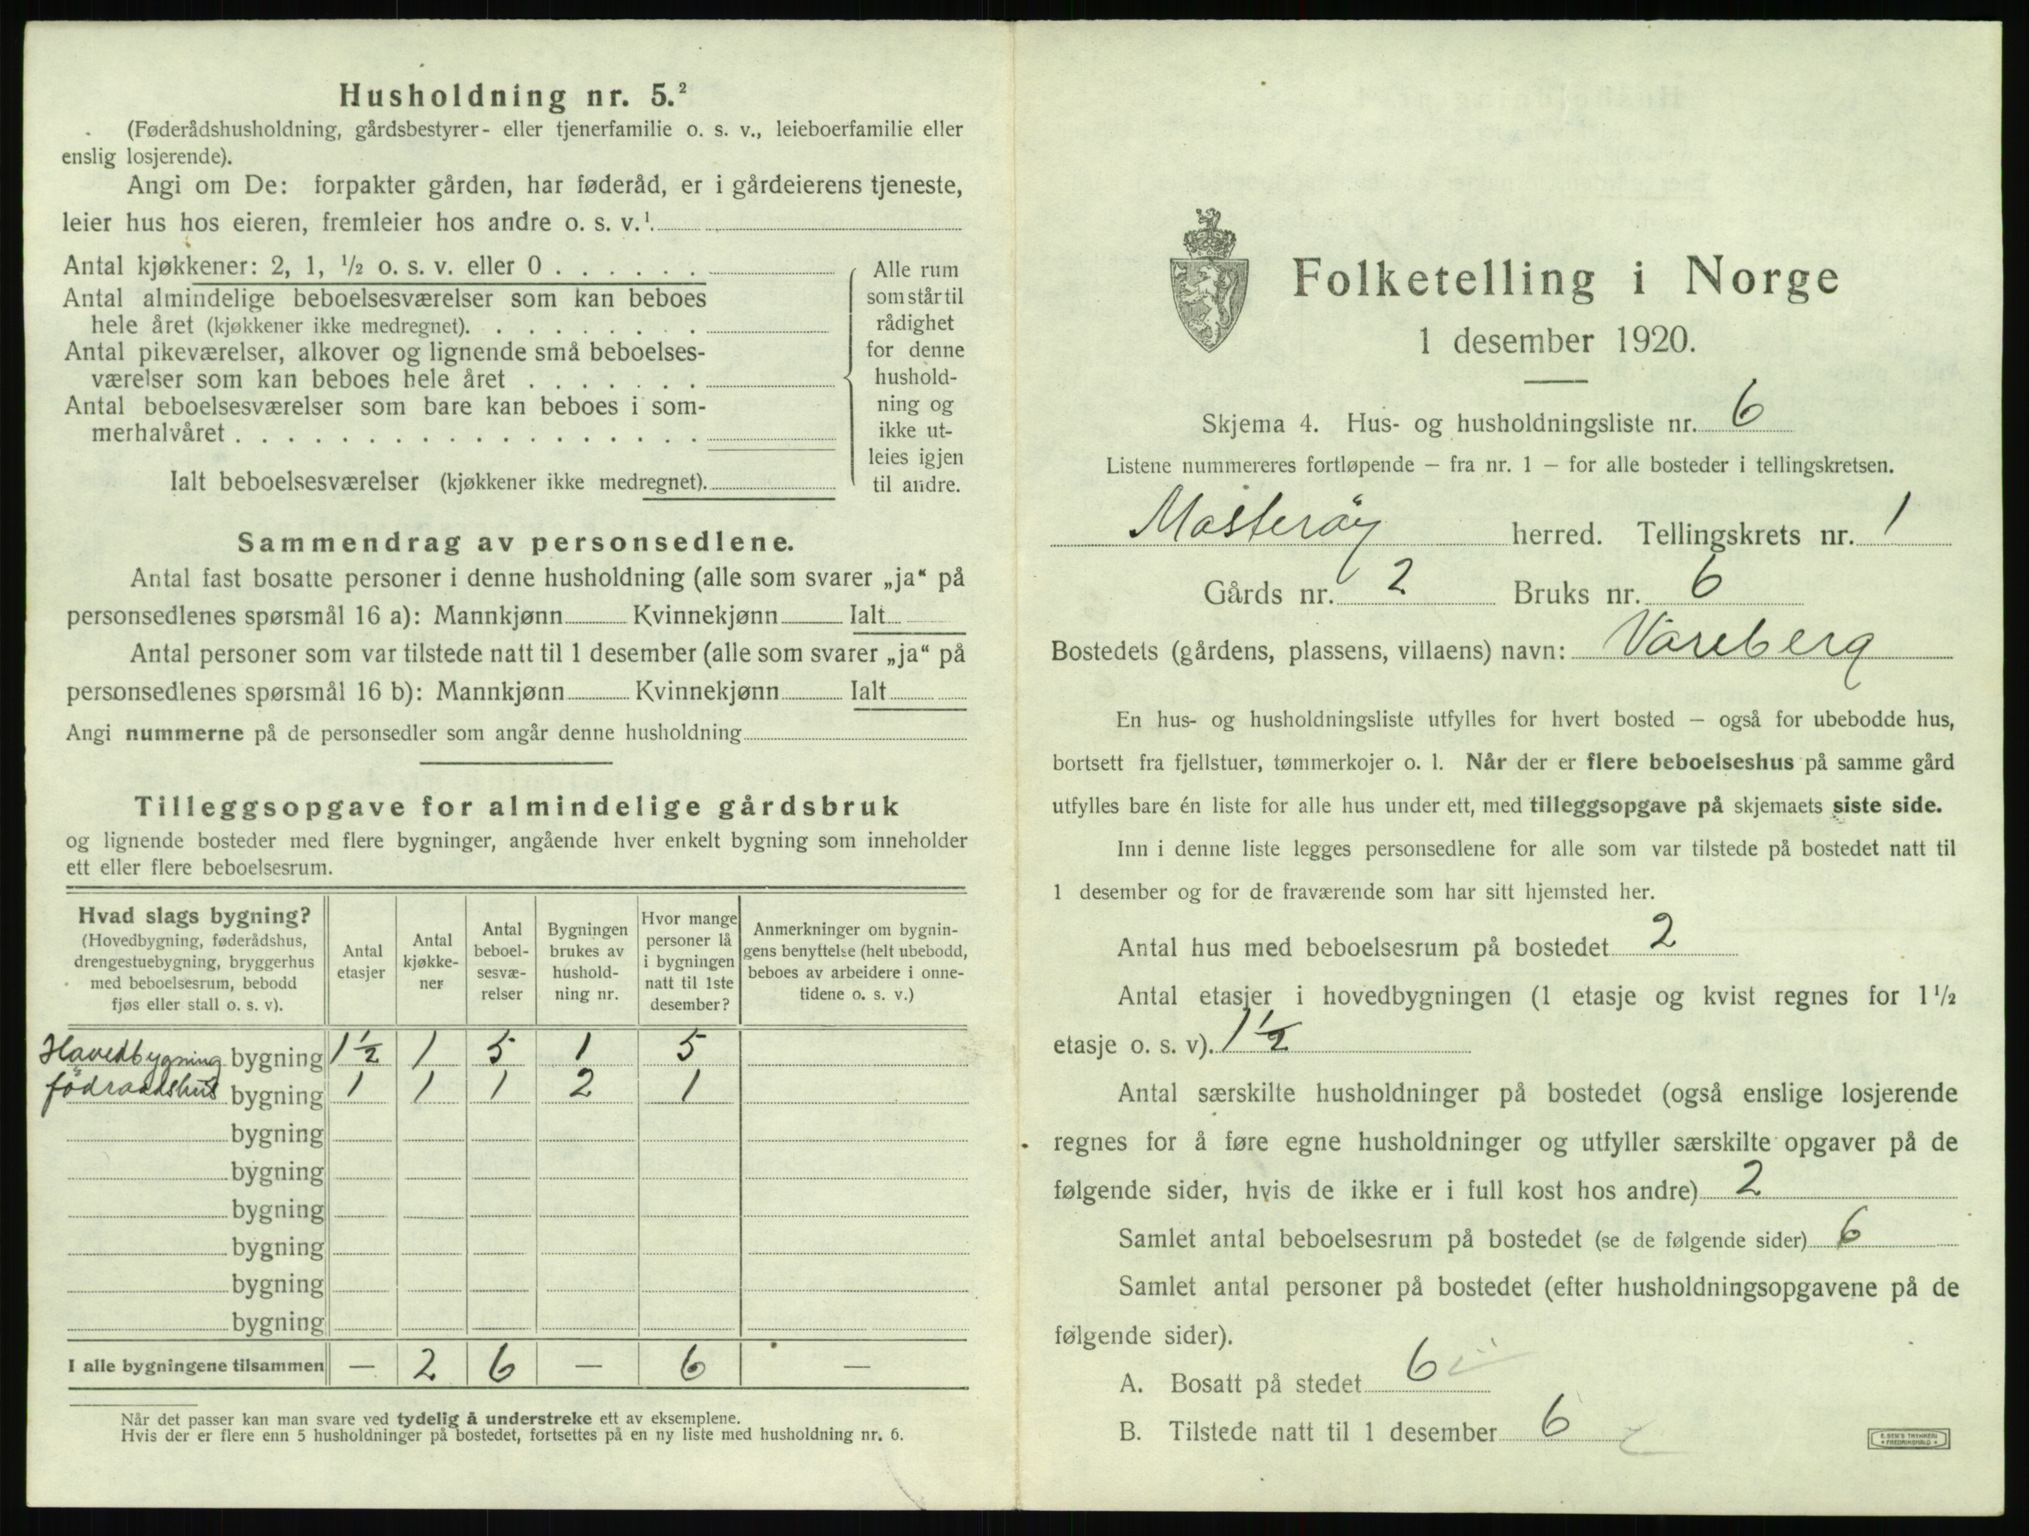 Husholdning nr. 5.²
(Føderådshusholdning, gårdsbestyrer- eller tjenerfamilie o. s. v., leieboerfamilie eller
enslig losjerende).
Angi om De: forpakter gården, har føderåd, er i gårdeierens tjeneste,
leier hus hos eieren, fremleier hos andre o. s. v.¹
Antal kjøkkener: 2, 1, ½ o. s. v. eller 0 . . . . . .
Antal almindelige beboelsesværelser som kan beboes
hele året (kjøkkener ikke medregnet). . . . . . . . .
Antal pikeværelser, alkover og lignende små beboelses-
værelser som kan beboes hele året . . . . . . .
Antal beboelsesværelser som bare kan beboes i som-
merhalvåret . . . . . . . . . . . . . . . . . .
Ialt beboelsesværelser (kjøkkener ikke medregnet).
Alle rum
som står til
rådighet
for denne
hushold-
ning og
ikke ut-
leies igjen
til andre.
Sammendrag av personsedlene.
Antal fast bosatte personer i denne husholdning (alle som svarer „ja“ på
personsedlenes spørsmål 16 a): Mannkjønn Kvinnekjønn Ialt
Antal personer som var tilstede natt til 1 desember (alle som svarer „ja“ på
personsedlenes spørsmål 16 b): Mannkjønn Kvinnekjønn Ialt
Angi nummerne på de personsedler som angår denne husholdning
Tilleggsopgave for almindelige gårdsbruk
og lignende bosteder med flere bygninger, angående hver enkelt bygning som inneholder
ett eller flere beboelsesrum.
Hvad slags bygning?
(Hovedbygning, føderådshus,
drengestuebygning, bryggerhus
med beboelsesrum, bebodd
fjøs eller stall o. s. v).
Antal
etasjer
Antal
kjøkke-
ner
Antal
beboel-
sesvæ-
relser
Bygningen
brukes av
hushold-
ning nr.
Hvor mange
personer lå
i bygningen
natt til 1ste
desember?
Anmerkninger om bygnin-
gens benyttelse (helt ubebodd,
beboes av arbeidere i onne-
tidene o. s. v.)
Hovedbygning bygning 1½ 1 5 1 5
födraadshus bygning 1 1 1 2 1
bygning
bygning
bygning
bygning
bygning
bygning
I alle bygningene tilsammen — 2 6 — 6 —
Når det passer kan man svare ved tydelig å understreke ett av eksemplene.
Hvis der er flere enn 5 husholdninger på bostedet, fortsettes på en ny liste med husholdning nr. 6.
Folketelling i Norge
1 desember 1920.
Skjema 4. Hus- og husholdningsliste nr. 6
Listene nummereres fortløpende — fra nr. 1 — for alle bosteder i tellingskretsen.
Mosterøy herred. Tellingskrets nr. 1
Gårds nr. 2 Bruks nr. 6
Bostedets (gårdens, plassens, villaens) navn: Vareberg
En hus- og husholdningsliste utfylles for hvert bosted — også for ubebodde hus,
bortsett fra fjellstuer, tømmerkojer o. l. Når der er flere beboelseshus på samme gård
utfylles bare én liste for alle hus under ett, med tilleggsopgave på skjemaets siste side.
Inn i denne liste legges personsedlene for alle som var tilstede på bostedet natt til
1 desember og for de fraværende som har sitt hjemsted her.
Antal hus med beboelsesrum på bostedet 2
Antal etasjer i hovedbygningen (1 etasje og kvist regnes for 1½
etasje o. s. v). 1½
Antal særskilte husholdninger på bostedet (også enslige losjerende
regnes for å føre egne husholdninger og utfyller særskilte opgaver på de
følgende sider, hvis de ikke er i full kost hos andre) 2
Samlet antal beboelsesrum på bostedet (se de følgende sider) 6
Samlet antal personer på bostedet (efter husholdningsopgavene på de
følgende sider).
A. Bosatt på stedet 6
B. Tilstede natt til 1 desember 6